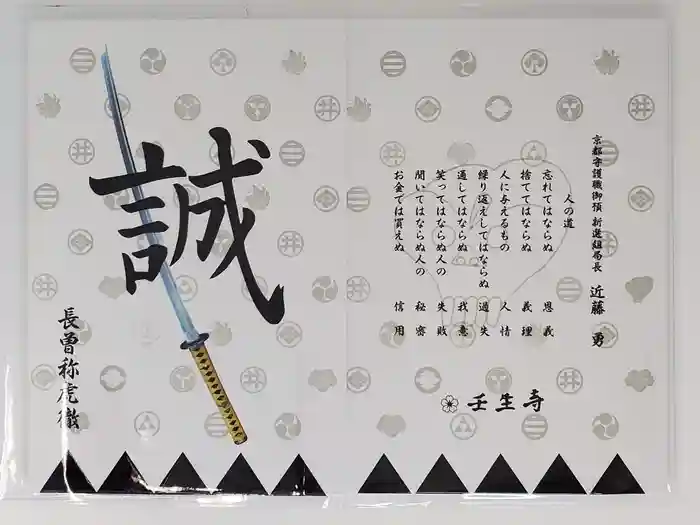 京都守護職御預 新選組局長 近藤 勇
人の道
忘れてはならぬ 恩義
捨ててはならぬ 義理
人に与えるもの 人情
繰り返えしてはならぬ 過失
通してはならぬ 我意
笑ってはならぬ人の 失敗
聞いてはならぬ人の 秘密
お金では買えぬ 信用
壬生寺
誠
長曽祢虎徹